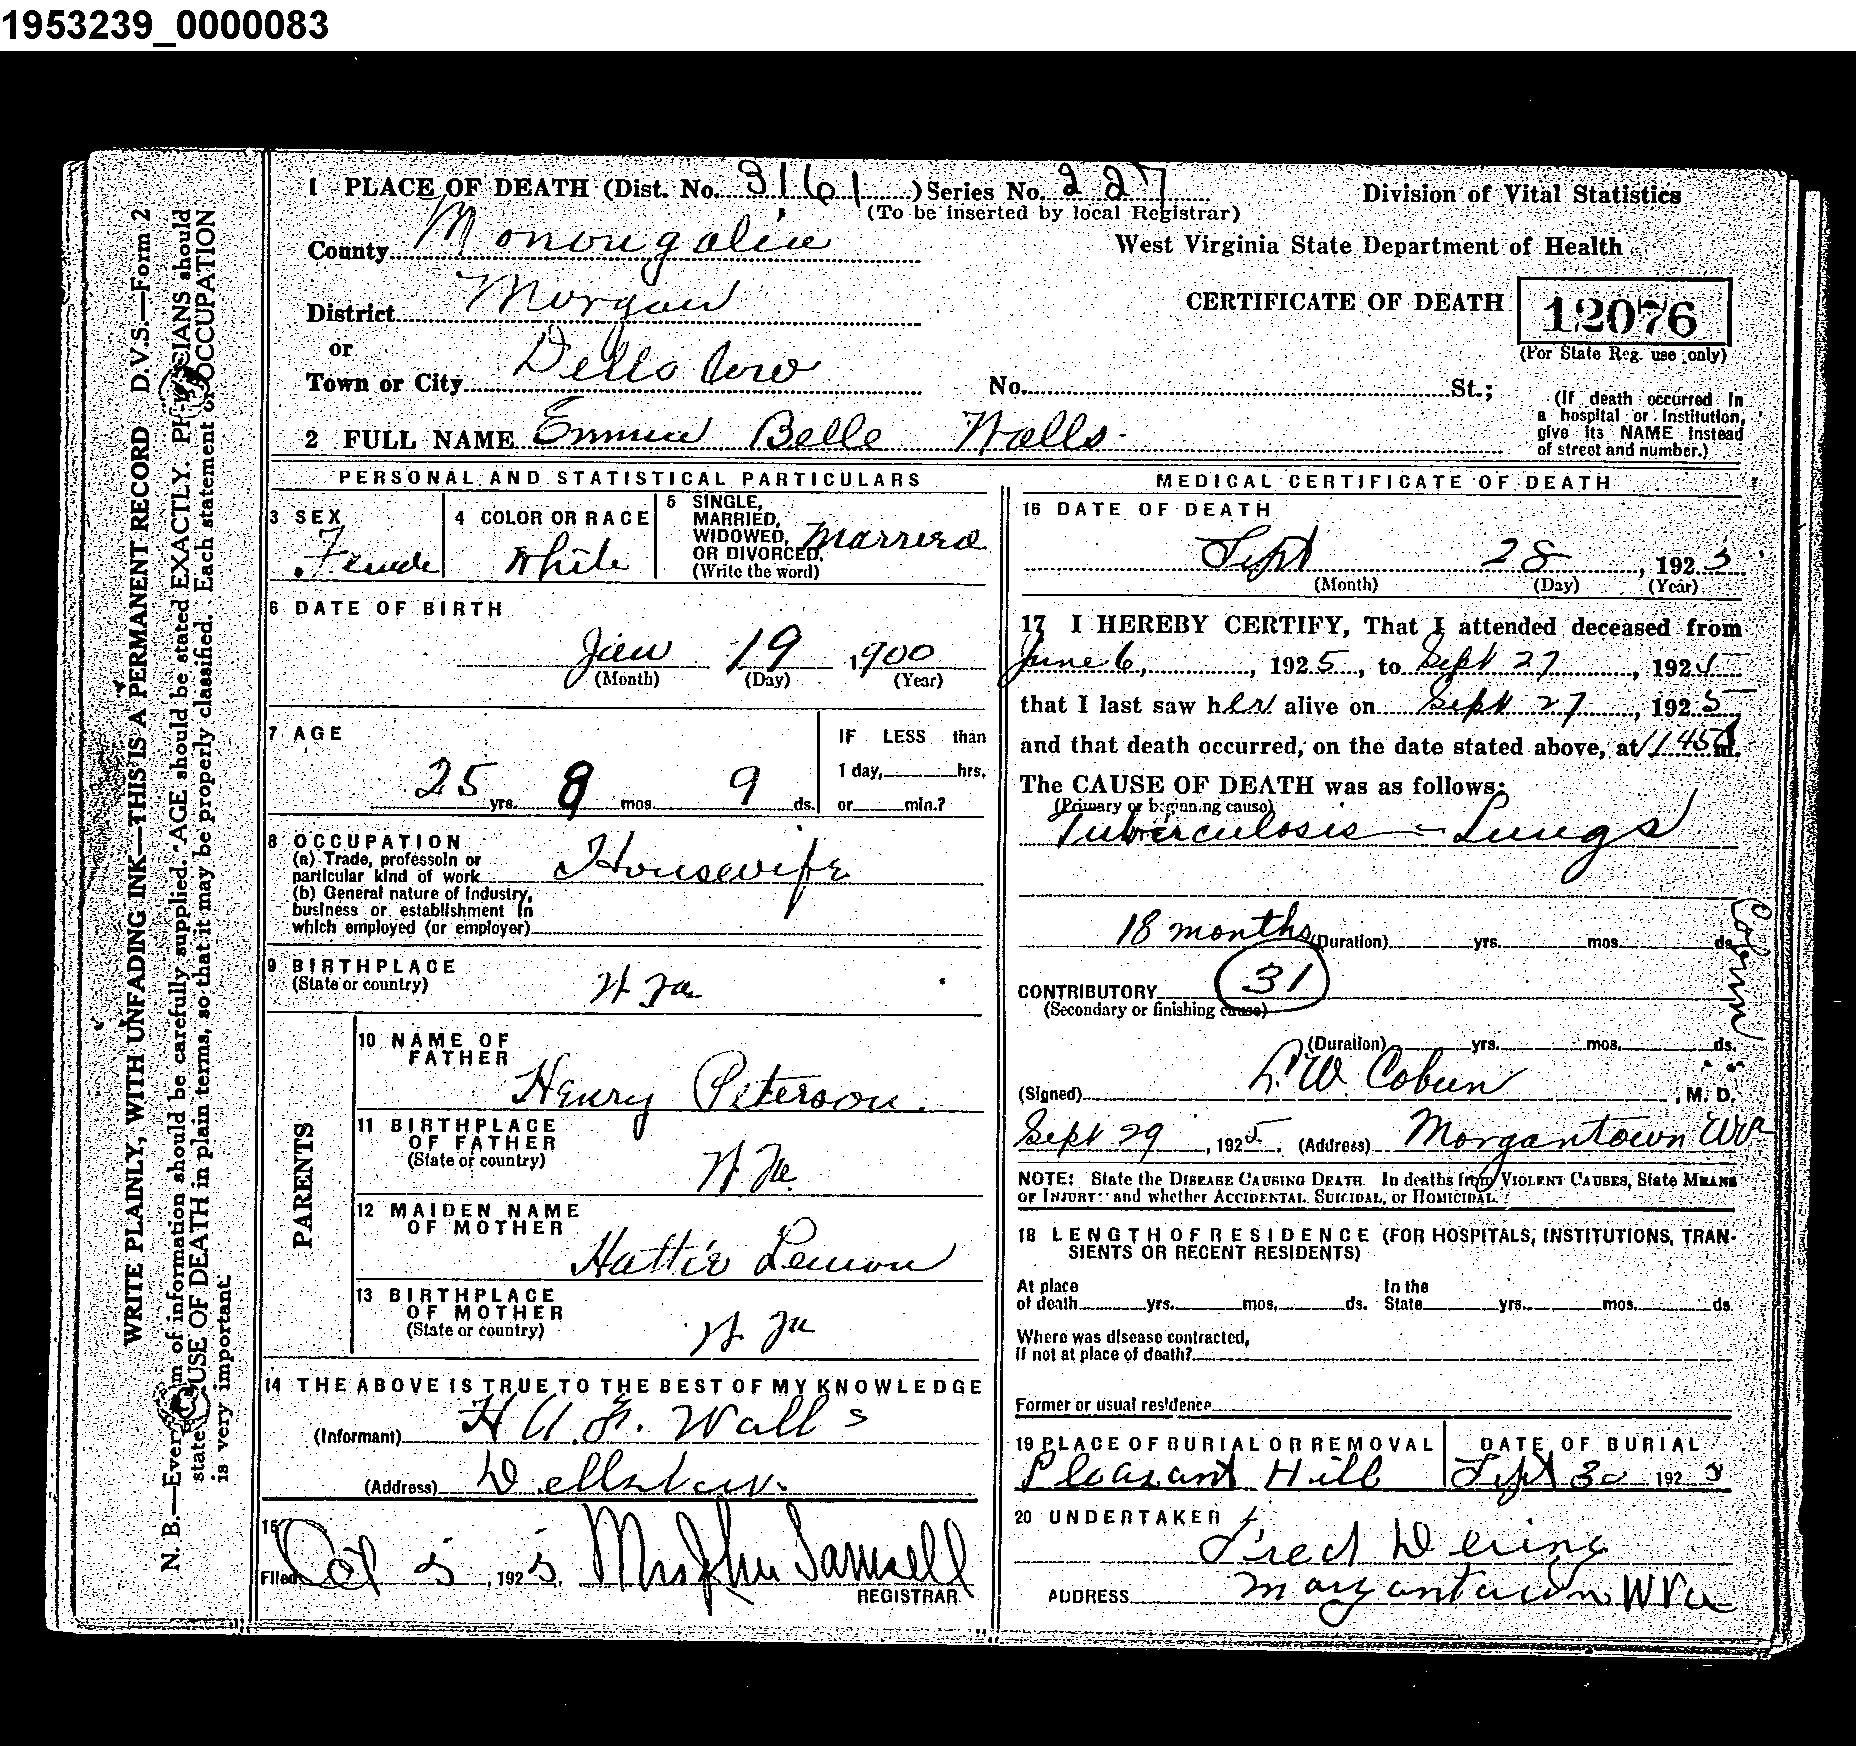 1953239_0000083
1 PLACE OF DEATH (Dist. No. 3161 ) Series No. 227
(To be inserted by local Registrar)
Division of Vital Statistics
County Monongalia
West Virginia State Department of Health
District Morgan
CERTIFICATE OF DEATH 12076
(For State Reg. use only)
or
Town or City Dellslow No. St.;
(If death occurred in
a hospital or institution,
give its NAME instead
of street and number.)
2 FULL NAME Emma Belle Walls
PERSONAL AND STATISTICAL PARTICULARS
3 SEX
Female
4 COLOR OR RACE
White
5 SINGLE,
MARRIED,
WIDOWED,
OR DIVORCED.
(Write the word)
Married
6 DATE OF BIRTH
Jan 19 1900
(Month) (Day) (Year)
7 AGE
25 yrs. 8 mos. 9 ds.
IF LESS than
1 day, hrs.
or min.?
8 OCCUPATION
(a) Trade, professoin or
particular kind of work Housewife
(b) General nature of industry,
business or establishment in
which employed (or employer)
9 BIRTHPLACE
(State or country)
W Va
PARENTS
10 NAME OF
FATHER
Henry Peterson
11 BIRTHPLACE
OF FATHER
(State or country)
W Va
12 MAIDEN NAME
OF MOTHER
Hattie Lemon
13 BIRTHPLACE
OF MOTHER
(State or country)
W Va
14 THE ABOVE IS TRUE TO THE BEST OF MY KNOWLEDGE
(Informant) Walls
(Address) Dellslow
15
Filed Oct 5, 1925. Mrs John Samsell
REGISTRAR
MEDICAL CERTIFICATE OF DEATH
16 DATE OF DEATH
Sept 28, 1925
(Month) (Day) (Year)
17 I HEREBY CERTIFY, That I attended deceased from
June 6, 1925, to Sept 27, 1925
that I last saw her alive on Sept 27, 1925
and that death occurred, on the date stated above, at 1145 m.
The CAUSE OF DEATH was as follows:
(Primary or beginning cause)
Tuberculosis - Lungs
18 months (Duration) yrs. mos. ds.
CONTRIBUTORY 31
(Secondary or finishing cause)
(Duration) yrs. mos. ds.
Coburn
(Signed) L. W. Cobun, M. D.
Sept 29, 1925. (Address) Morgantown WVa
NOTE: State the DISEASE CAUSING DEATH. In deaths from VIOLENT CAUSES, State MEANS
OF INJURY: and whether ACCIDENTAL, SUICIDAL, or HOMICIDAL.
18 LENGTH OF RESIDENCE (FOR HOSPITALS, INSTITUTIONS, TRAN-
SIENTS OR RECENT RESIDENTS)
At place
of death yrs. mos. ds.
In the
State yrs. mos. ds
Where was disease contracted,
if not at place of death?
Former or usual residence
19 PLACE OF BURIAL OR REMOVAL
Pleasant Hill
DATE OF BURIAL
Sept 30 1925
20 UNDERTAKER
Fred Dering
ADDRESS Morgantown W Va
WRITE PLAINLY, WITH UNFADING INK—THIS IS A PERMANENT RECORD D.V.S.—Form 2
N. B.—Every item of information should be carefully supplied. AGE should be stated EXACTLY. PHYSICIANS should
state CAUSE OF DEATH in plain terms, so that it may be properly classified. Each statement of OCCUPATION
is very important